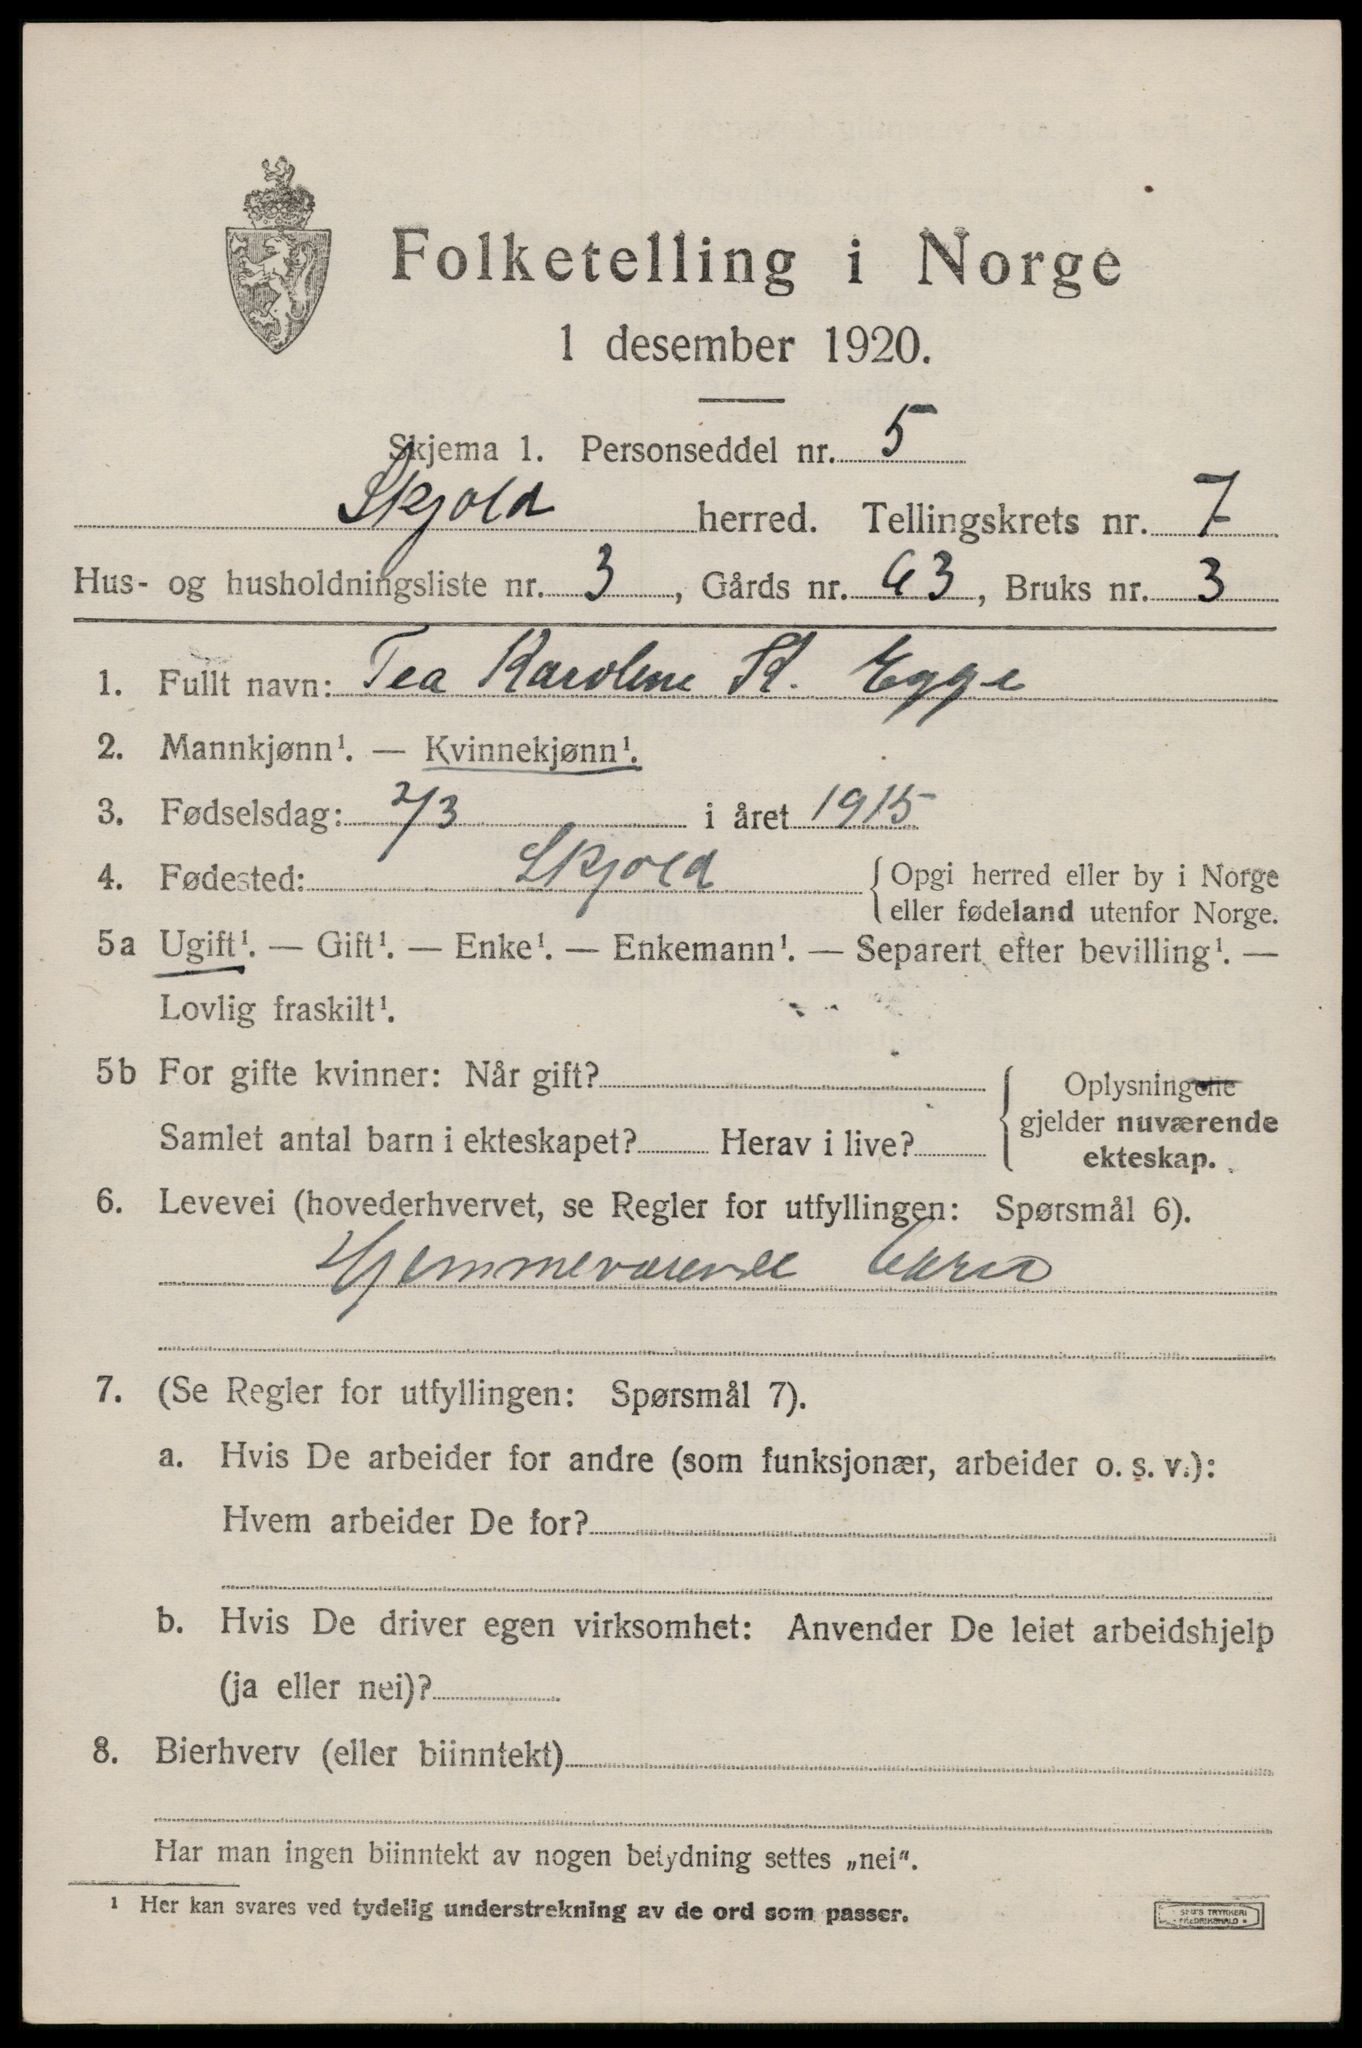 Folketelling i Norge
1 desember 1920.
Skjema 1. Personseddel nr. 5
Skjold herred. Tellingskrets nr. 7
Hus- og husholdningsliste nr. 3, Gårds nr. 63, Bruks nr. 3
1. Fullt navn: Tea Karoline K. Egge
2. Mannkjønn¹. — Kvinnekjønn¹.
3. Fødselsdag: 2/3 i året 1915
4. Fødested: Skjold {Opgi herred eller by i Norge
eller fødeland utenfor Norge.
5a Ugift¹. — Gift¹. — Enke¹. — Enkemann¹. — Separert efter bevilling¹. —
Lovlig fraskilt¹.
5b For gifte kvinner: Når gift? Oplysningene
gjelder nuværende
Samlet antal barn i ekteskapet? Herav i live?
ekteskap.
6. Levevei (hovederhvervet, se Regler for utfyllingen: Spørsmål 6).
Hjemmeværende
7. (Se Regler for utfyllingen: Spørsmål 7).
a. Hvis De arbeider for andre (som funksjonær, arbeider o. s. v.):
Hvem arbeider De for?
b. Hvis De driver egen virksomhet: Anvender De leiet arbeidshjelp
(ja eller nei)?
8. Bierhverv (eller biinntekt)
Har man ingen biinntekt av nogen betydning settes „nei".
¹ Her kan svares ved tydelig understrekning av de ord som passer.
TRYKKERI
FREDRIKSHALD